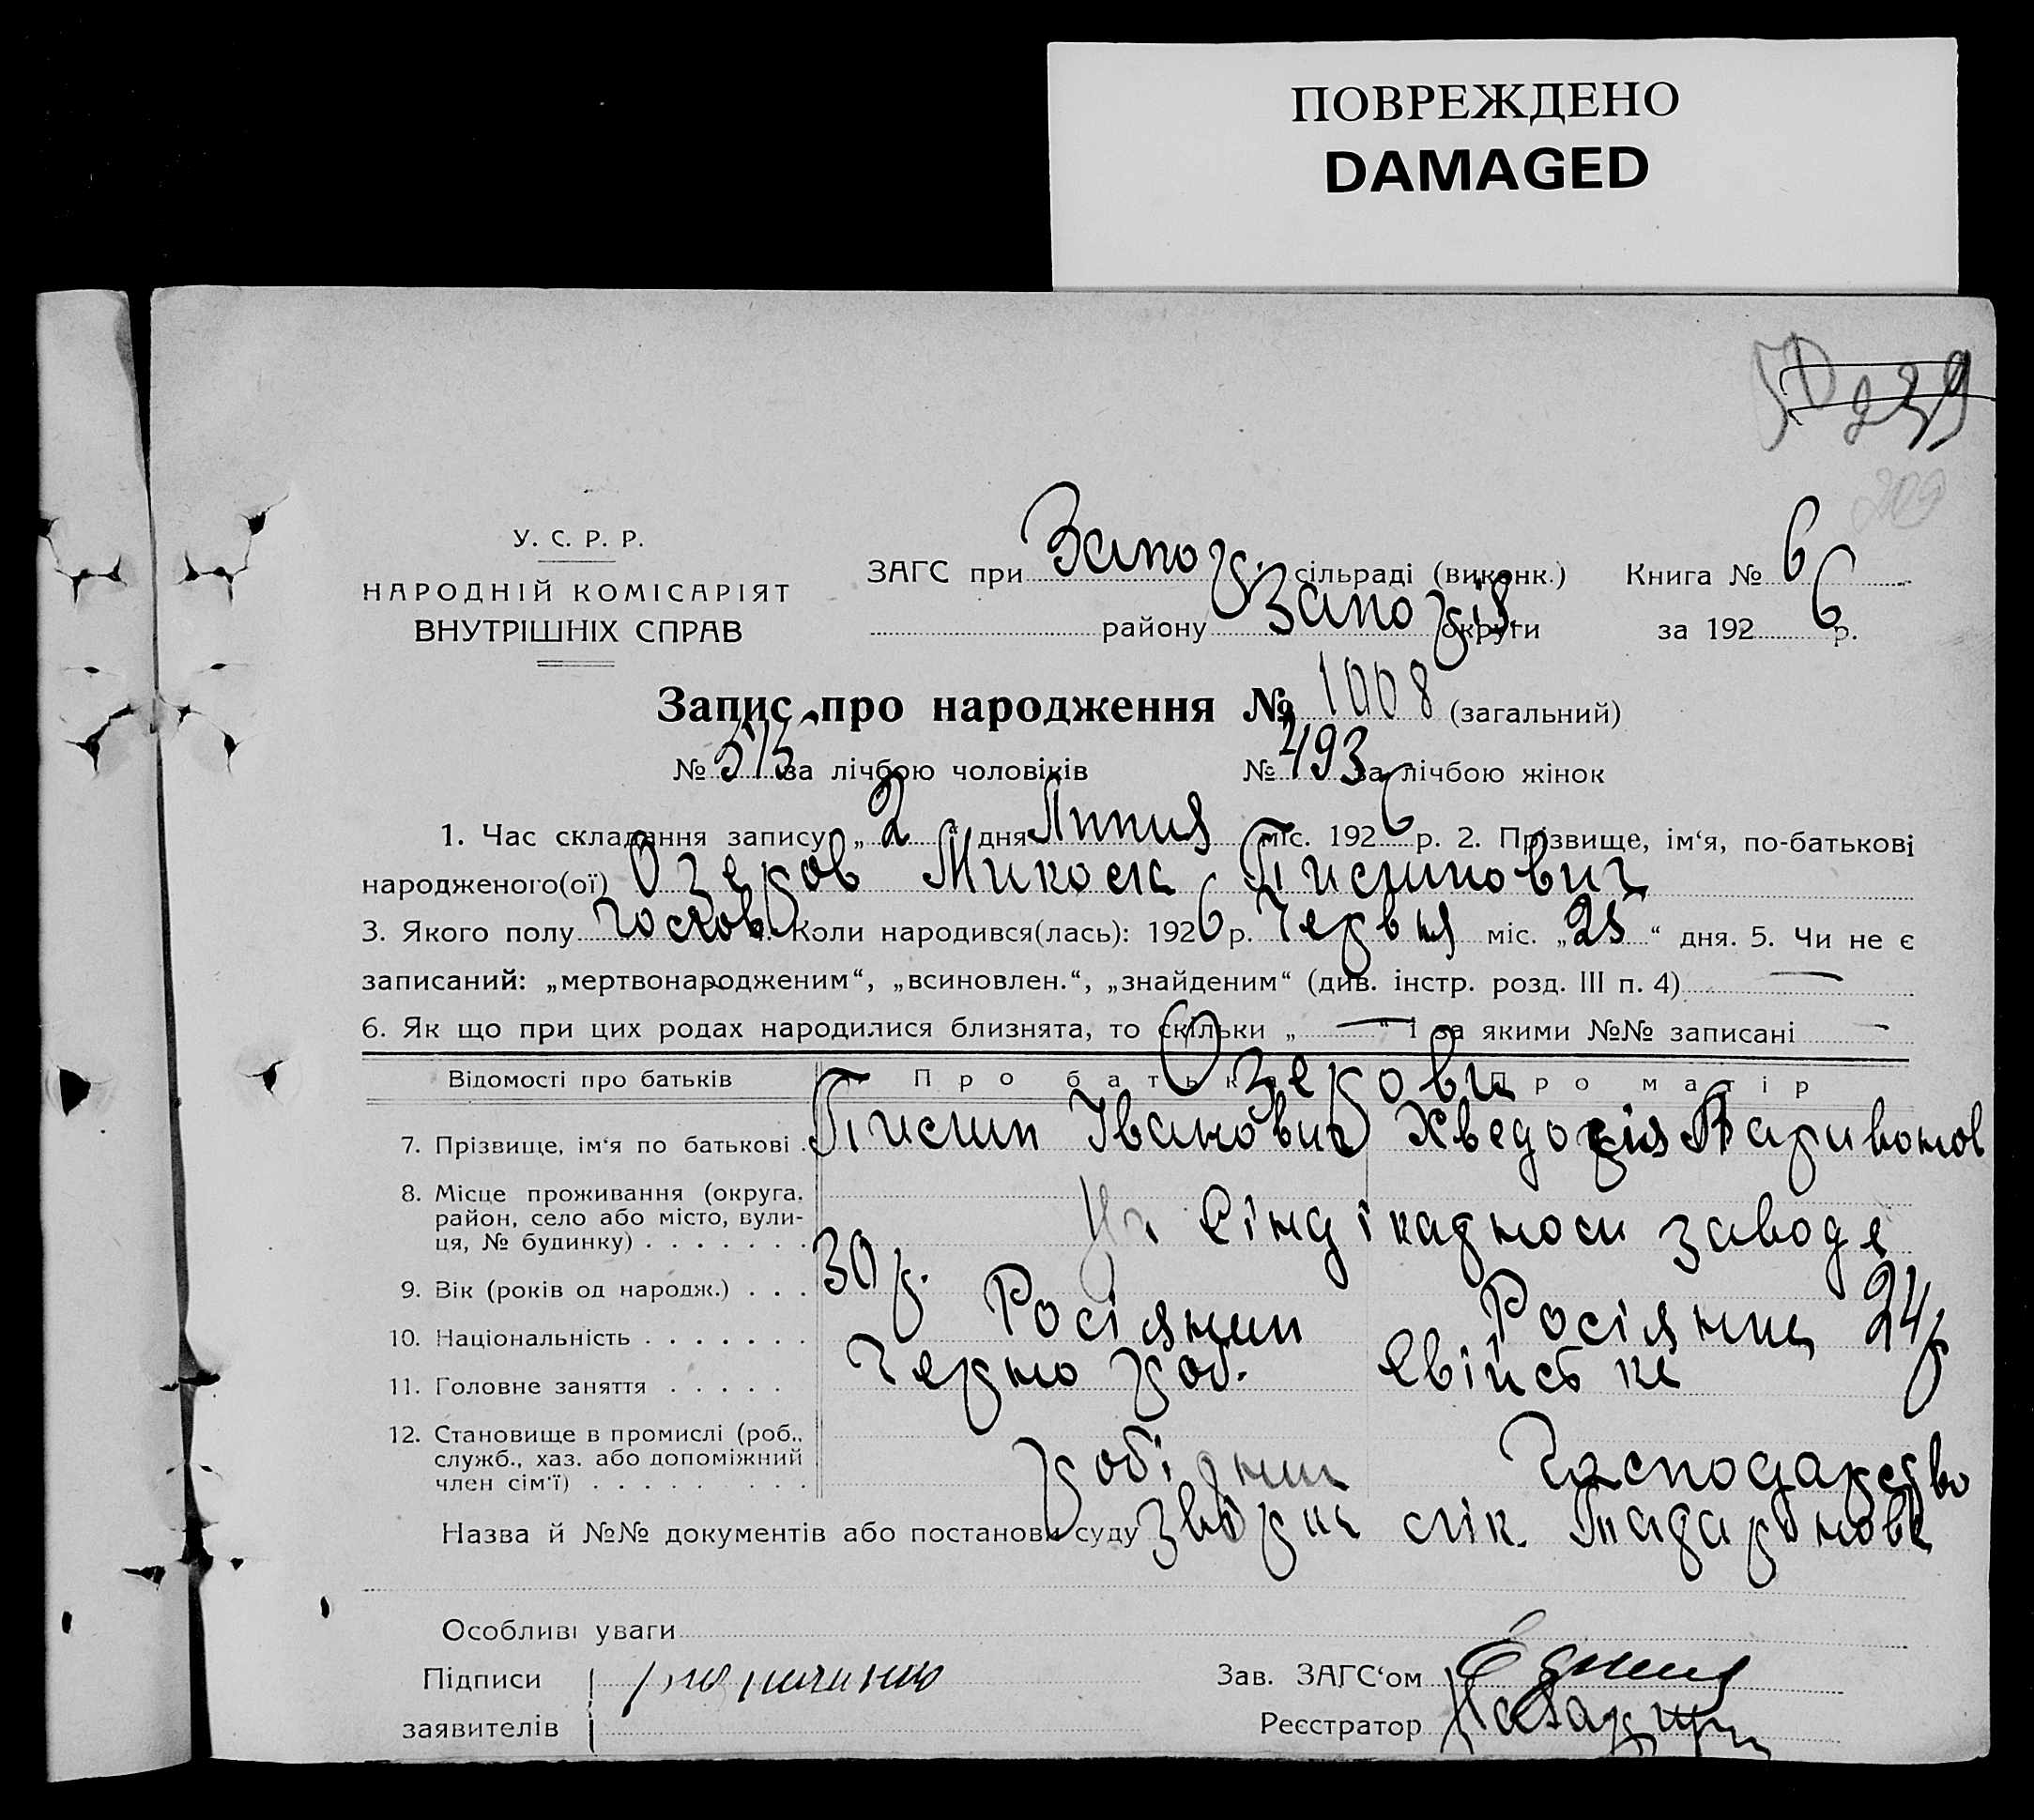 ПОВРЕЖДЕНО
DAMAGED
239
209
У. С. Р. Р.
НАРОДНІЙ КОМІСАРІЯТ
ВНУТРІШНІХ СПРАВ
ЗАГС при Запоріз. сільраді (виконк.) Книга № 6
району Запоріз округи за 1926 р.
Запис про народження № 1008 (загальний)
№ 515 за лічбою чоловіків № 493 за лічбою жінок
1. Час складання запису „2“ дня Липня міс. 1926 р. 2. Прізвище, ім‘я, по-батькові
народженого(ої) Озеров Микола Пилипович
3. Якого полу чолов. 4. Коли народився(лась): 1926 р. Червня міс. „25“ дня. 5. Чи не є
записаний: „мертвонародженим“, „всиновлен.“, „знайденим“ (див. інстр. розд. III п. 4) —
6. Як що при цих родах народилися близнята, то скільки „—“ і за якими №№ записані —
Відомості про батьків Про батька Про матір
Озерови
7. Прізвище, ім‘я по батькові Пилип Іванович Хведосія Паривонов
8. Місце проживання (округа, район, село або місто, вулиця, № будинку) На заводе
9. Вік (років од народж.) 30 р. 24 р
10. Національність Росіянин Росіянка
11. Головне заняття Чернороб. Свійське
12. Становище в промислі (роб., служб., хаз. або допоміжний член сім‘ї) робітник Господарство
Назва й №№ документів або постанови суду лік.
Особливі уваги
Підписи
заявителів
Зав. ЗАГС‘ом
Реєстратор